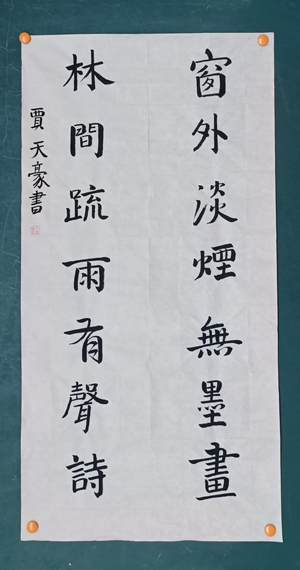 窗外淡煙無墨畫
林間疏雨有聲詩
賈天豪書